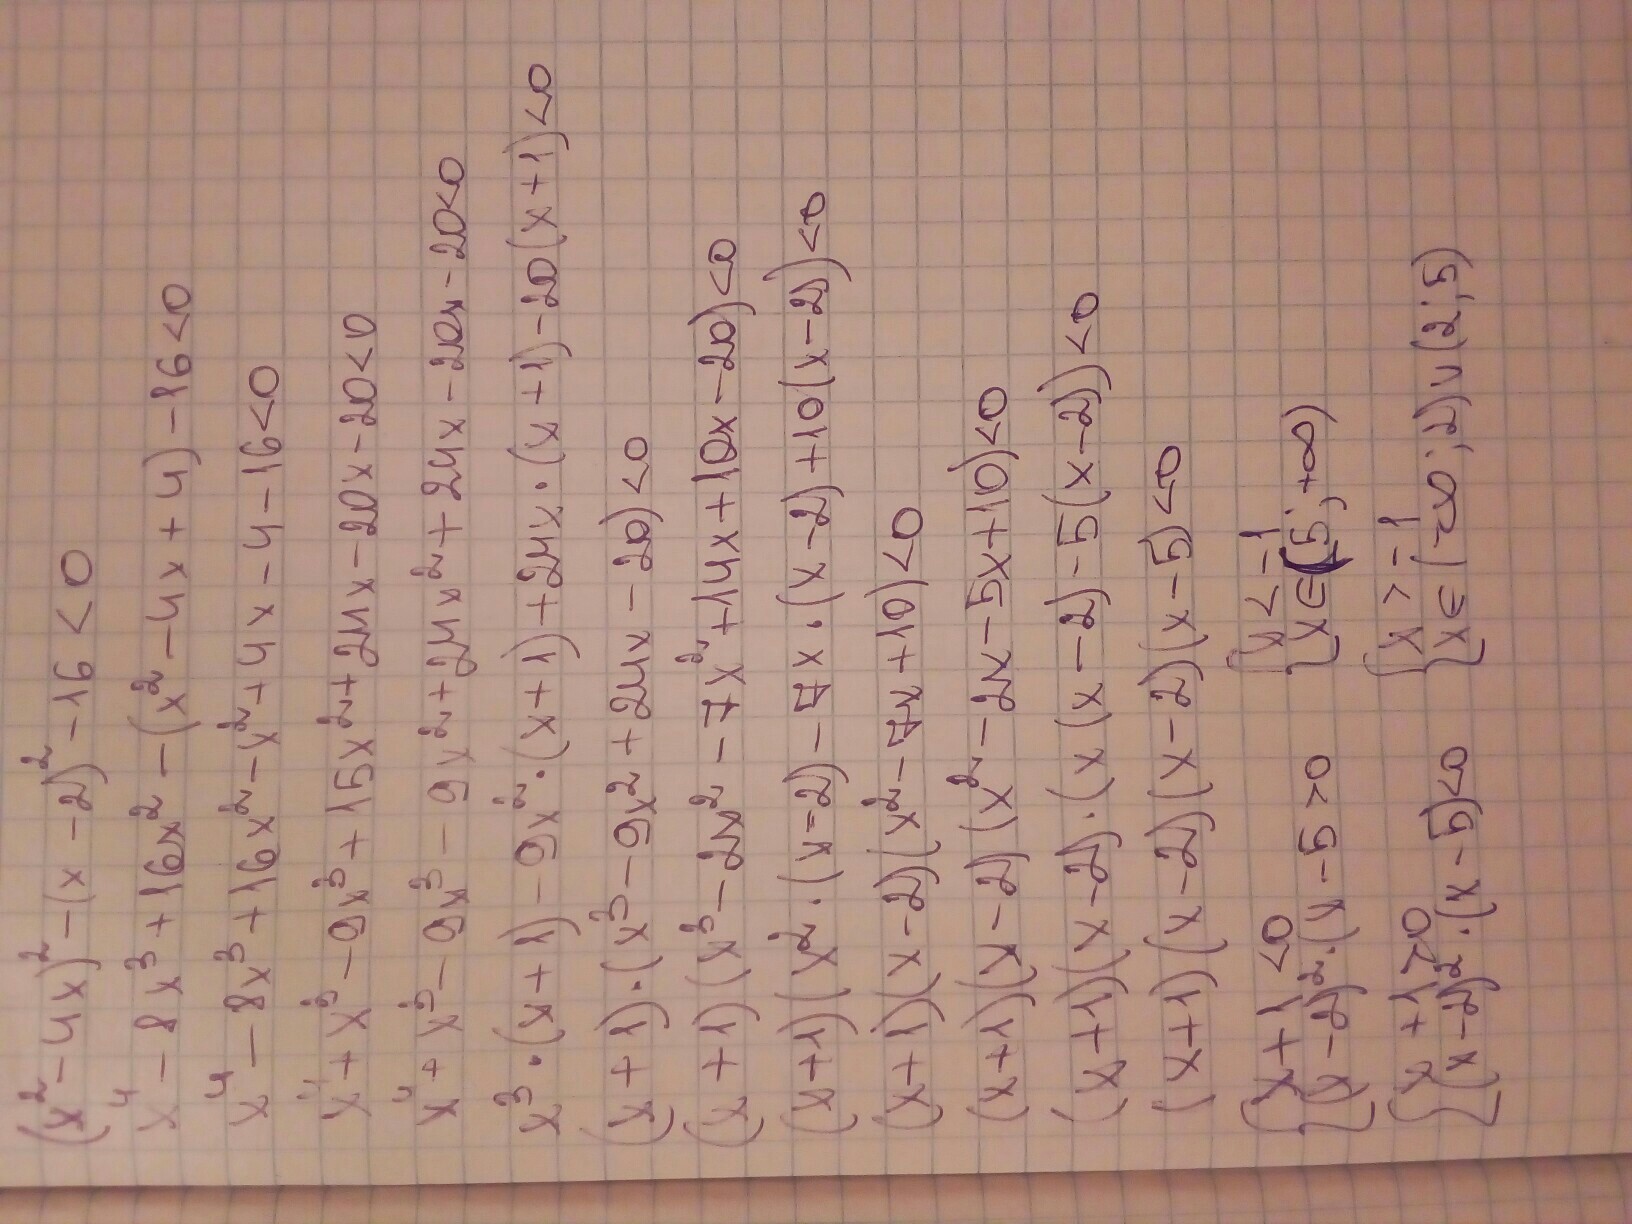 (x²-4x)²-(x-2)²-16<0
x⁴-8x³+16x²-(x²-4x+4)-16<0
x⁴-8x³+16x²-x²+4x-4-16<0
x⁴+x³-9x³+15x²+24x-20x-20<0
x⁴+x³-9x³-9x²+24x²+24x-20x-20<0
x³·(x+1)-9x²·(x+1)+24x·(x+1)-20(x+1)<0
(x+1)·(x³-9x²+24x-20)<0
(x+1)(x³-2x²-7x²+14x+10x-20)<0
(x+1)(x²·(x-2)-7x·(x-2)+10(x-2))<0
(x+1)(x-2)(x²-7x+10)<0
(x+1)(x-2)(x²-2x-5x+10)<0
(x+1)(x-2)·(x(x-2)-5(x-2))<0
(x+1)(x-2)(x-2)(x-5)<0
{x+1<0 {x<-1
{(x-2)²·(x-5>0 {x∈(5;+∞)
{x+1>0 {x>-1
{(x-2)²·(x-5)<0 {x∈(-∞;2)∪(2;5)